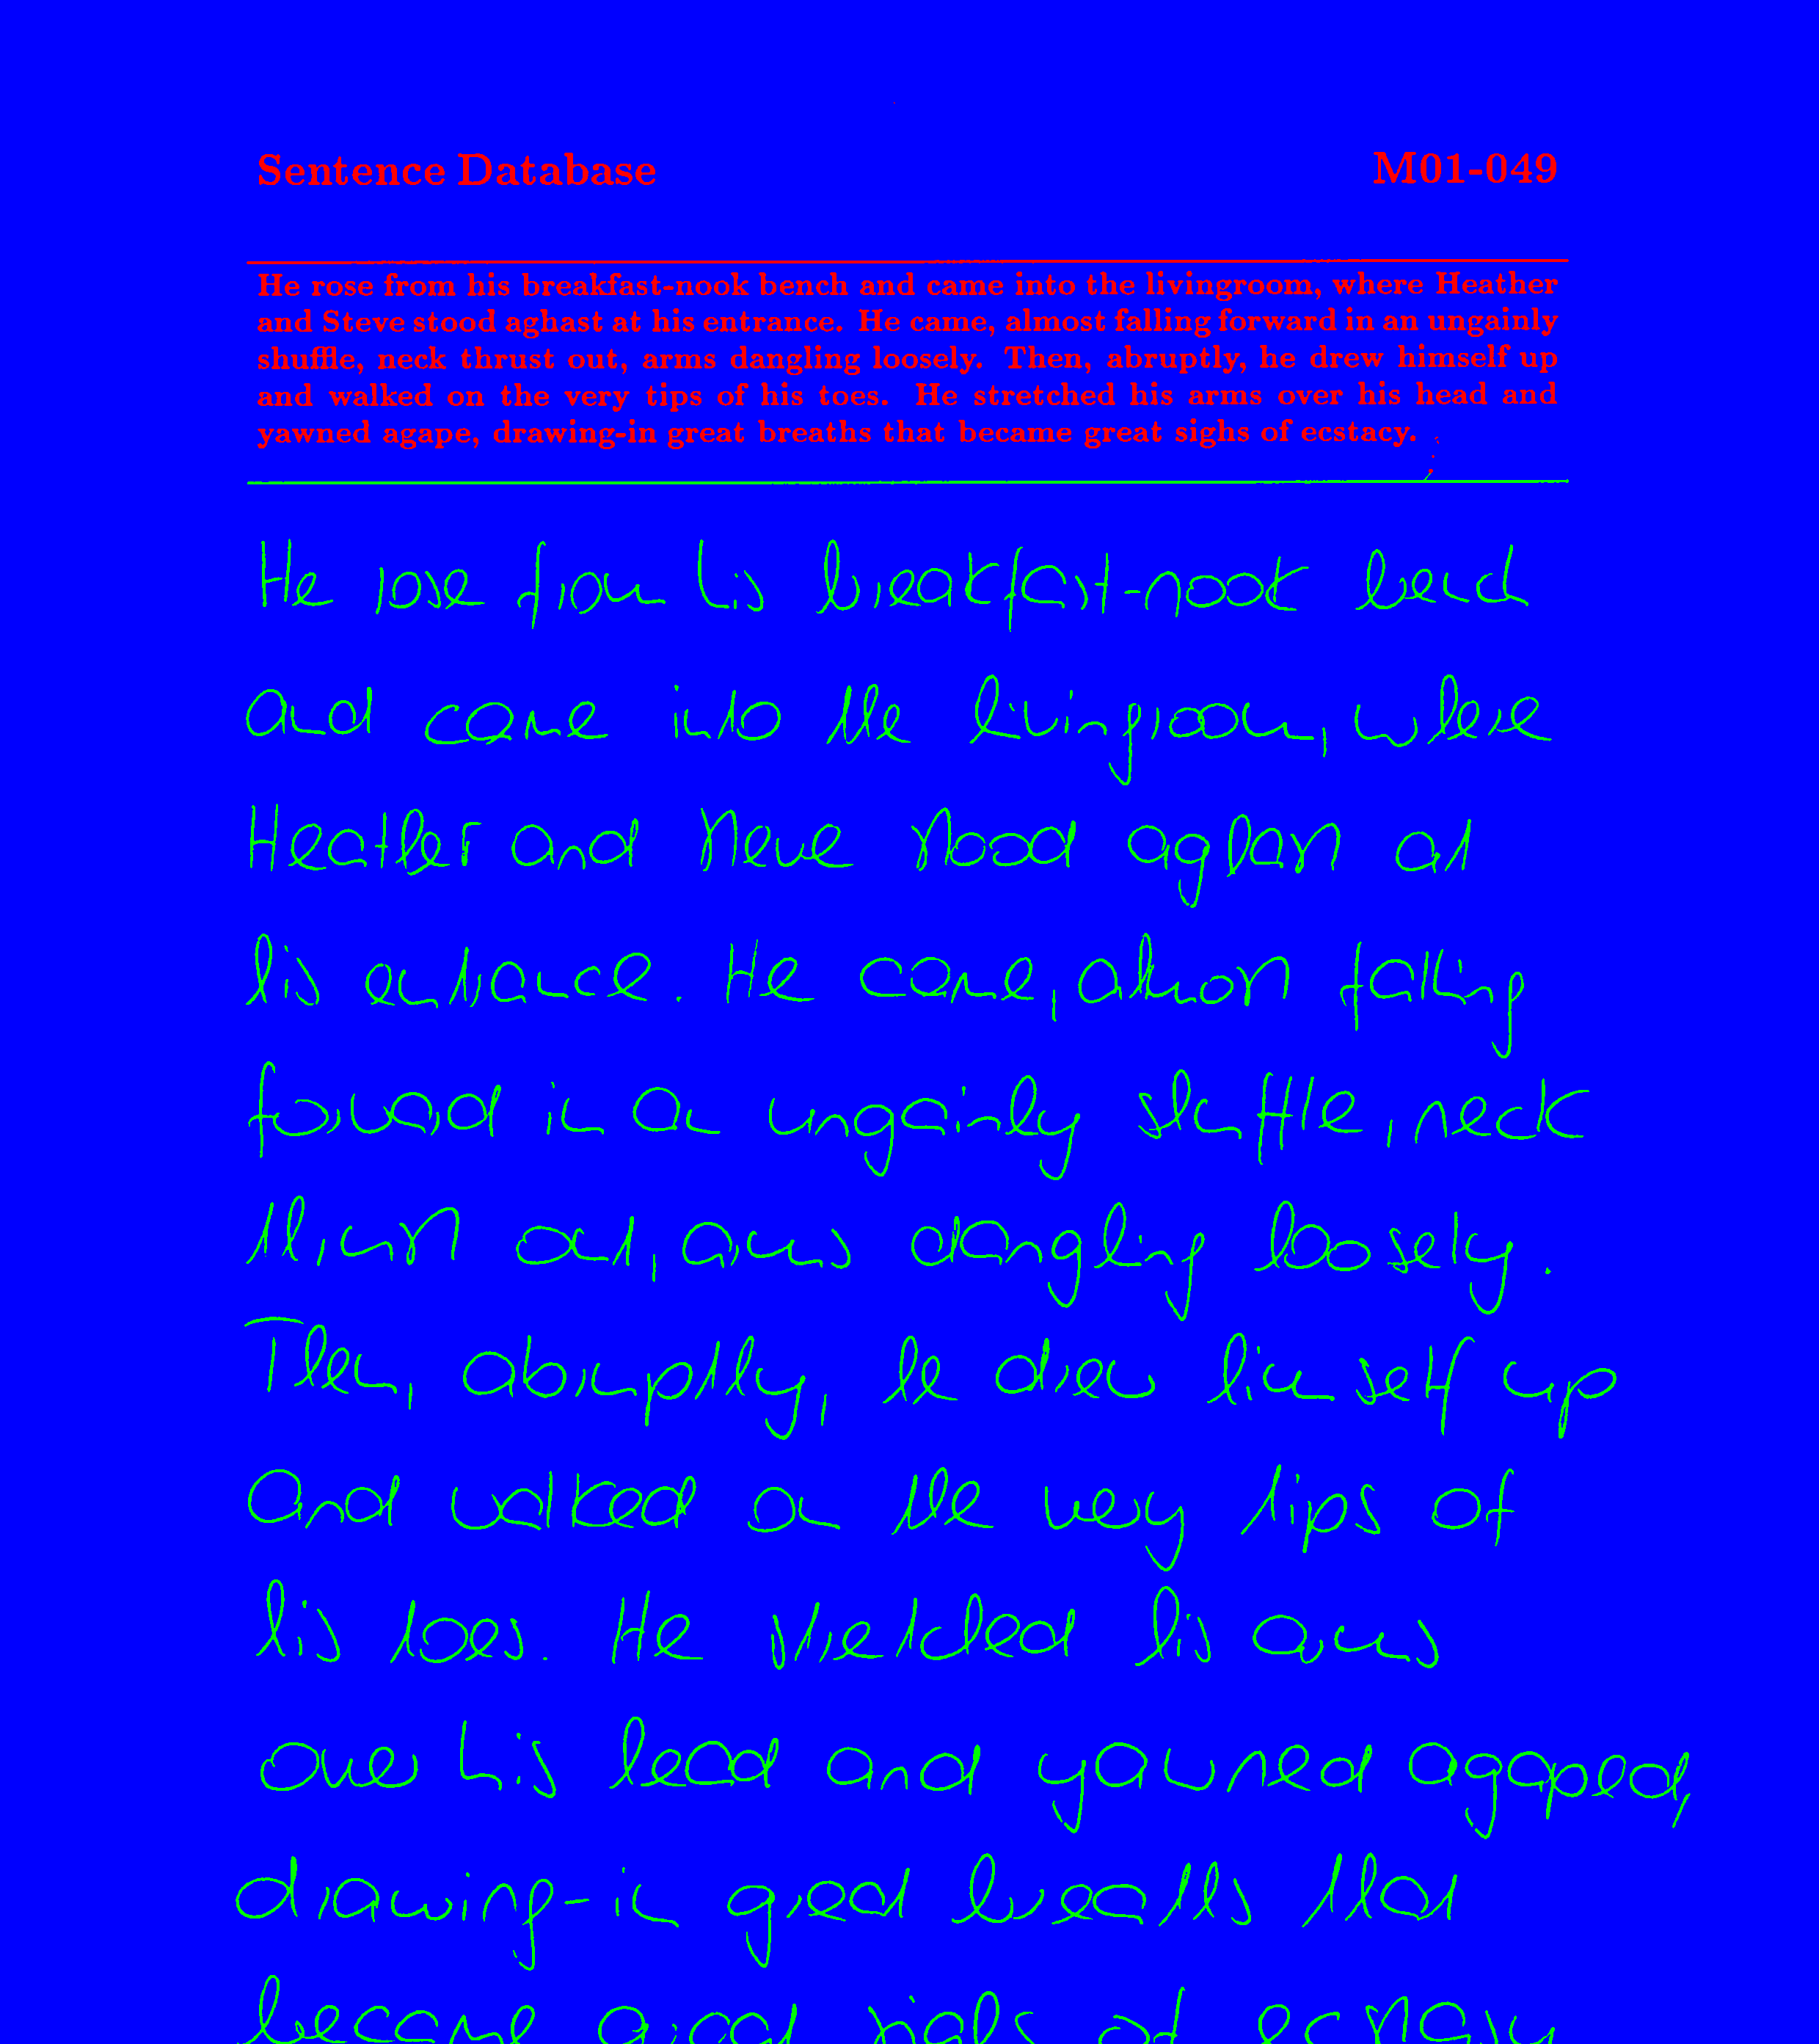 Sentence Database M01-049
He rose from his breakfast-nook bench and came into the livingroom, where Heather
and Steve stood aghast at his entrance. He came, almost falling forward in an ungainly
shuffle, neck thrust out, arms dangling loosely. Then, abruptly, he drew himself up
and walked on the very tips of his toes. He stretched his arms over his head and
yawned agape, drawing-in great breaths that became great sighs of ecstacy.
He rose from his breakfast-nook bench
and came into the livingroom, where
Heather and Steve stood aghast at
his entrance. He came, almost falling
forward in an ungainly shuffle, neck
thrust out, arms dangling loosely.
Then, abruptly, he drew himself up
and walked on the very tips of
his toes. He stretched his arms
over his head and yawned agaped,
drawing-in great breaths that
became great sighs of ecstasy